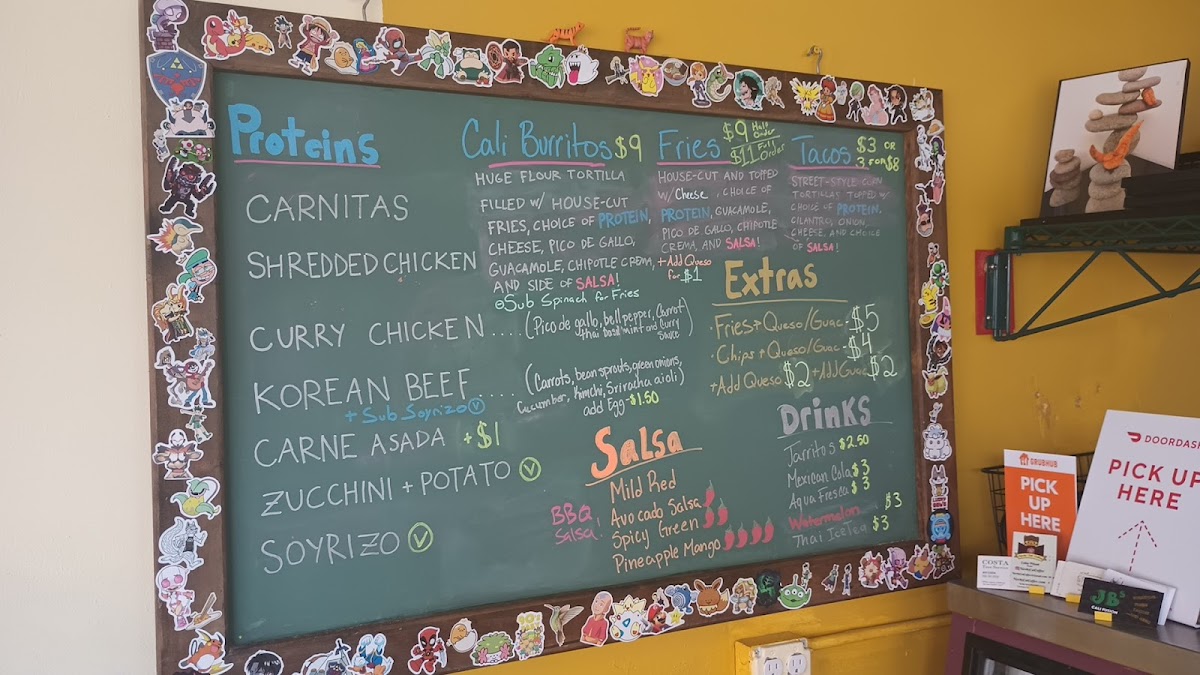 Proteins
CARNITAS
SHREDDED CHICKEN
CURRY CHICKEN .... (Pico de gallo, bell pepper, Carrot
thai basil mint and Curry
Sauce)
KOREAN BEEF .... (Carrots, bean sprouts, green onions,
Cucumber, Kimchi, Sriracha aioli)
add Egg - $1.50
+ Sub Soyrizo V
CARNE ASADA +$1
ZUCCHINI + POTATO V
SOYRIZO V
Cali Burritos $9
HUGE FLOUR TORTILLA
FILLED W/ HOUSE-CUT
FRIES, CHOICE OF PROTEIN,
CHEESE, PICO DE GALLO,
GUACAMOLE, CHIPOTLE CREMA,
AND SIDE OF SALSA!
Sub Spinach for Fries
Fries $9 Half Order
$11 Full Order
HOUSE-CUT AND TOPPED
W/ Cheese, CHOICE OF
PROTEIN, GUACAMOLE,
PICO DE GALLO, CHIPOTLE
CREMA, AND SALSA!
+Add Queso
for $1
Tacos $3 OR
3 FOR $8
STREET-STYLE CORN
TORTILLAS TOPPED W/
CHOICE OF PROTEIN,
CILANTRO, ONION,
CHEESE, AND CHOICE
OF SALSA!
Extras
· Fries + Queso/Guac - $5
· Chips + Queso/Guac - $4
+ Add Queso $2 + Add Guac $2
Salsa
Mild Red
Avocado Salsa
Spicy Green
Pineapple Mango
BBQ
Salsa!
Drinks
Jarritos $2.50
Mexican Cola $3
Agua Fresca $3
Watermelon $3
Thai Ice Tea $3
GRUBHUB
PICK
UP
HERE
DOORDASH
PICK UP
HERE
COSTA
JB's
CALI FUSION